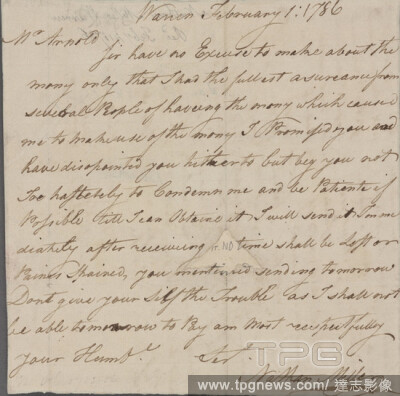 Warren February 1: 1786
Mr Arnold
Sir have no Excuse to make about the
mony only that I had the fullest asureance from
several People of haveing the mony which caused
me to make use of the mony I Promised you and
have disapointed you hitherto but beg you not
Too hastely to Condemn me and be Patiente if
Possible till I can Obtaine it I will send it Imme
diately after receiveing it No time shall be Lost or
Pains Spaired, you mentioned sending tomorrow
Dont give your Self the Trouble as I shall not
be able tomorrow to Pay am Most respectfully
your Humble Sert
Nathan Miller
TPG
www.tpgnews.com / 達志影像